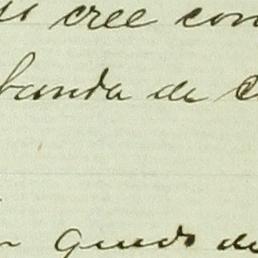 se cree con
banda de C
n quedo de